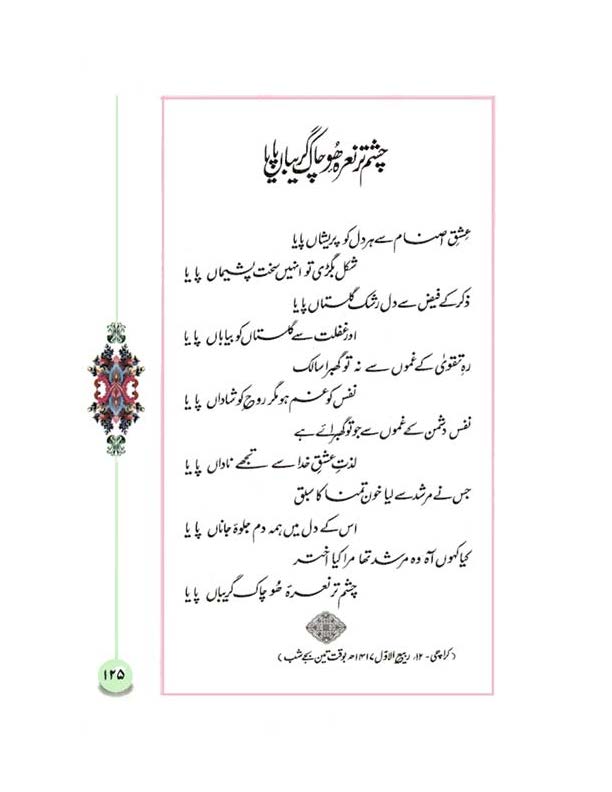 چشمِ تر نعرۂ ھُو چاک گریباں پایا
عشقِ اصنام سے ہر دل کو پریشاں پایا
شکل بگڑی تو انہیں سخت پشیماں پایا
ذکر کے فیض سے دل رشک گلستاں پایا
اور غفلت سے گلستاں کو بیاباں پایا
رہِ تقویٰ کے غموں سے نہ تو گھبرا سالک
نفس کو غم ہو مگر روح کو شاداں پایا
نفس دشمن کے غموں سے جو تو گھبرائے ہے
لذتِ عشقِ خدا سے تجھے ناداں پایا
جس نے مرشد سے لیا خونِ تمنا کا سبق
اس کے دل میں ہمہ دم جلوۂ جاناں پایا
کیا کہوں آہ وہ مرشد تھا مرا کیا اختر
چشمِ تر نعرۂ ھُو چاک گریباں پایا
(کراچی - ۱۲؍ ربیع الاوّل ۱۴۱۷ھ بوقت تین بجے شب)
۱۲۵